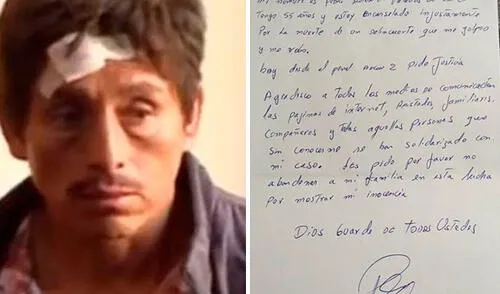 mi nombre es
Tengo 55 años y estoy encarcelado injustamente
Por la muerte de un delincuente que me golpeo
y me robo.
hoy desde el penal ancon 2 pido Justicia
Agradezco a todos los medios de comunicación
las paginas de internet, Amistades, familiares.
Compañeros y todas aquellas Personas que
Sin conocerme se han solidarizado con
mi caso. Les pido por favor no
abandonen a mi familia en esta lucha
por mostrar mi inocencia
Dios Guarde de todos Ustedes